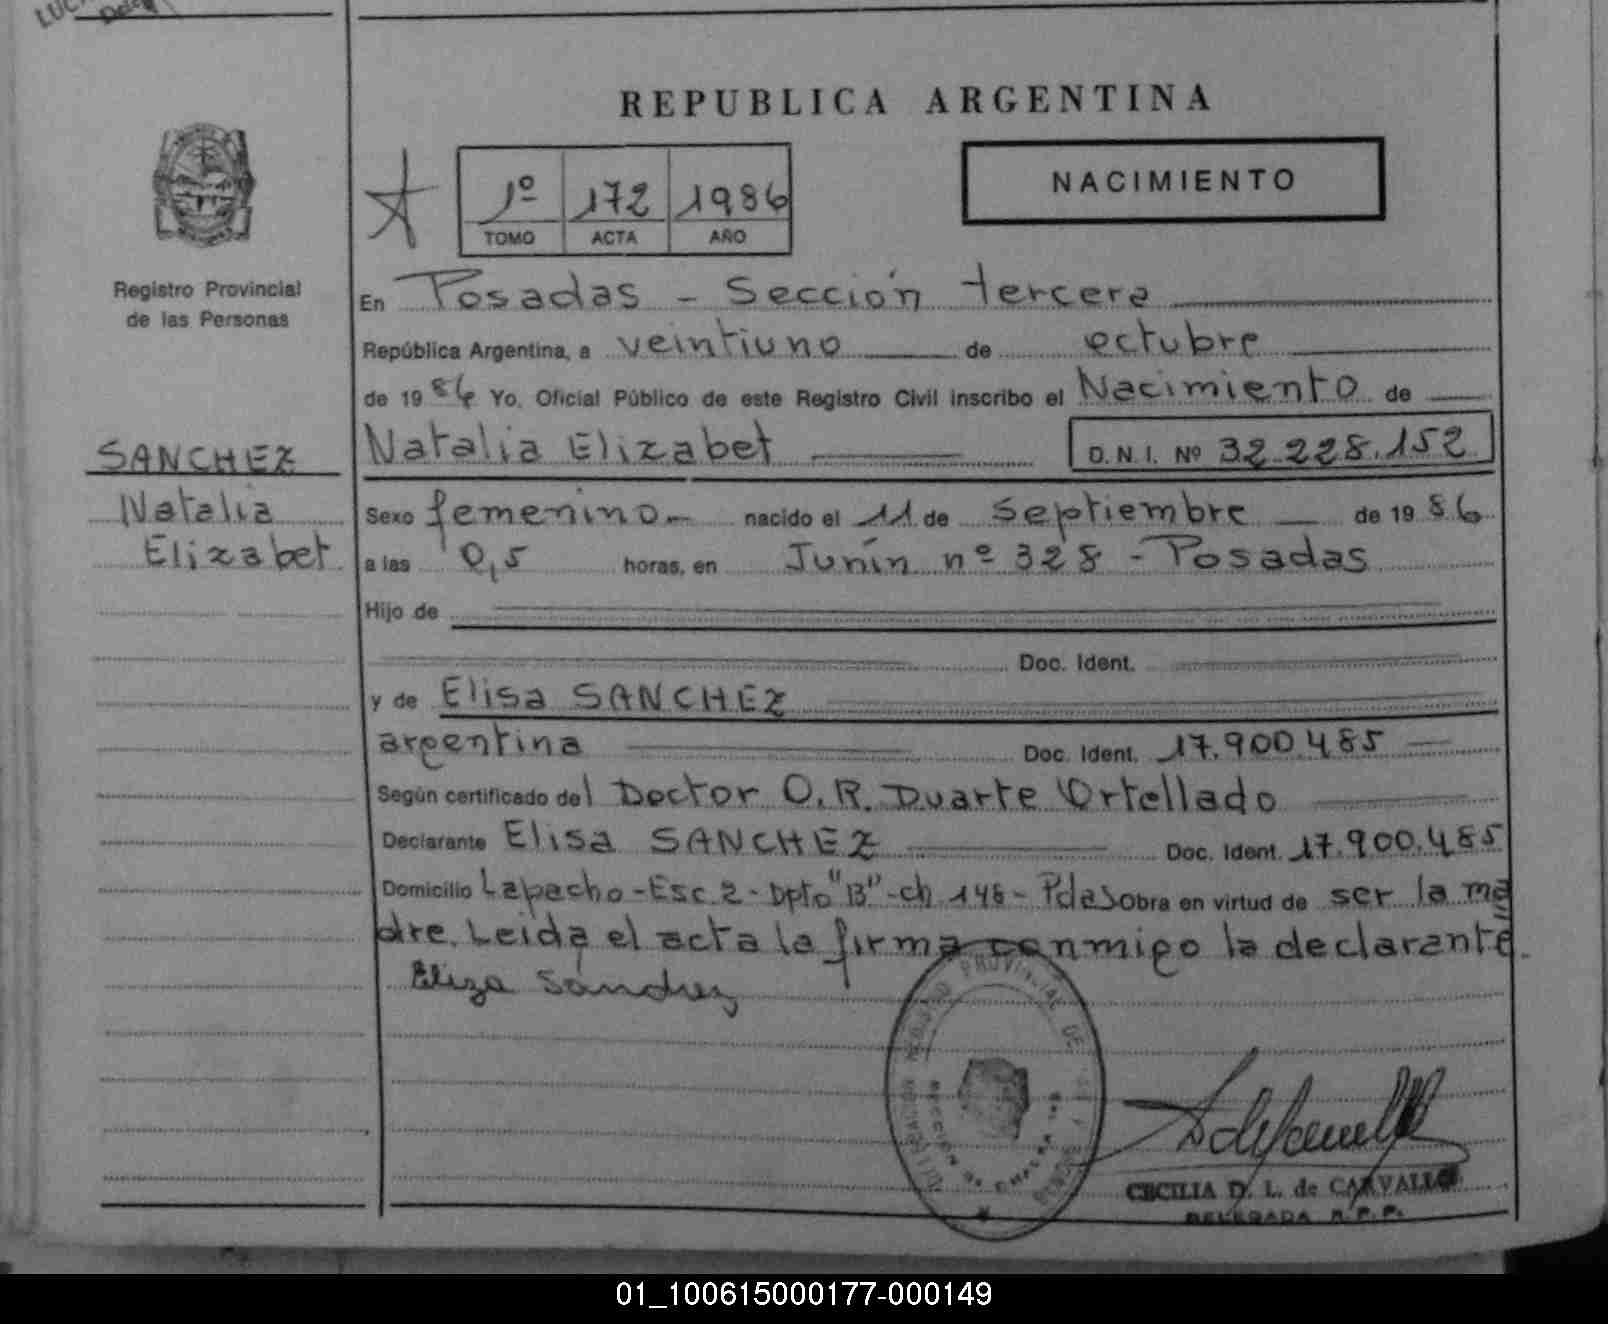 REPUBLICA ARGENTINA
NACIMIENTO
1º 172 1986
TOMO ACTA AÑO
Registro Provincial
de las Personas
SANCHEZ
Natalia
Elizabet
En Posadas - Sección tercera
República Argentina, a veintiuno de octubre
de 1986 Yo, Oficial Público de este Registro Civil inscribo el Nacimiento de
Natalia Elizabet D.N.I. Nº 32.228.152
Sexo femenino.- nacido el 11 de septiembre de 1986
a las 0,5 horas, en Junín nº 328 - Posadas
Hijo de
Doc. Ident.
y de Elisa SANCHEZ
argentina Doc. Ident. 17.900.485
Según certificado del Doctor O. R. Duarte Ortellado
Declarante Elisa SANCHEZ Doc. Ident. 17.900.485
Domicilio Lapacho - Esc. 2 - Dpto "B" - ch. 148 - Pdas Obra en virtud de ser la ma
dre. Leida el acta la firma conmigo la declarante.
Eliza Sanchez
PROVINCIAL DE
CECILIA D. L. de CARVALLO
DELEGADA R.P.P.
01_100615000177-000149